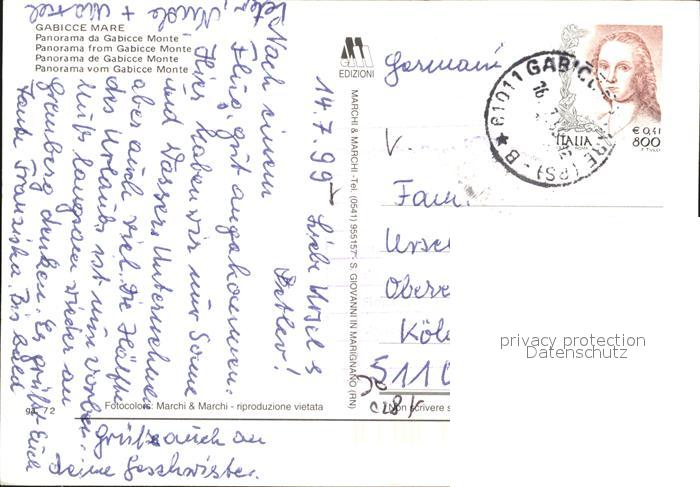 GABICCE MARE
Panorama da Gabicce Monte
Panorama from Gabicce Monte
Panorama de Gabicce Monte
Panorama vom Gabicce Monte
EDIZIONI
MARCHI & MARCHI -Tel. (0541) 955157 - S. GIOVANNI IN MARIGNANO (RN)
61011 GABICCE MARE (PS) - B
€ 0,41
ITALIA 800
ROMA
F. TULLI
14.7.99
Liebe Ursel &
Detlev!
Nach einem
Flug, gut angekommen.
Hier haben wir nur Sonne
und Wasser. Unternehmen
aber auch viel. Die Hälfte
des Urlaubs ist nun vorbei.
Muß langsam wieder an
denken. Es grüßt Euch
Tante Franziska. Bis bald
Grüße auch an
Deine Geschwister.
Nicole + Marcel
Germani
V.
Fam.
Urse
Ober
Köl
5110
privacy protection
Datenschutz
ga. 72
Fotocolors: Marchi & Marchi - riproduzione vietata
Non scrivere s